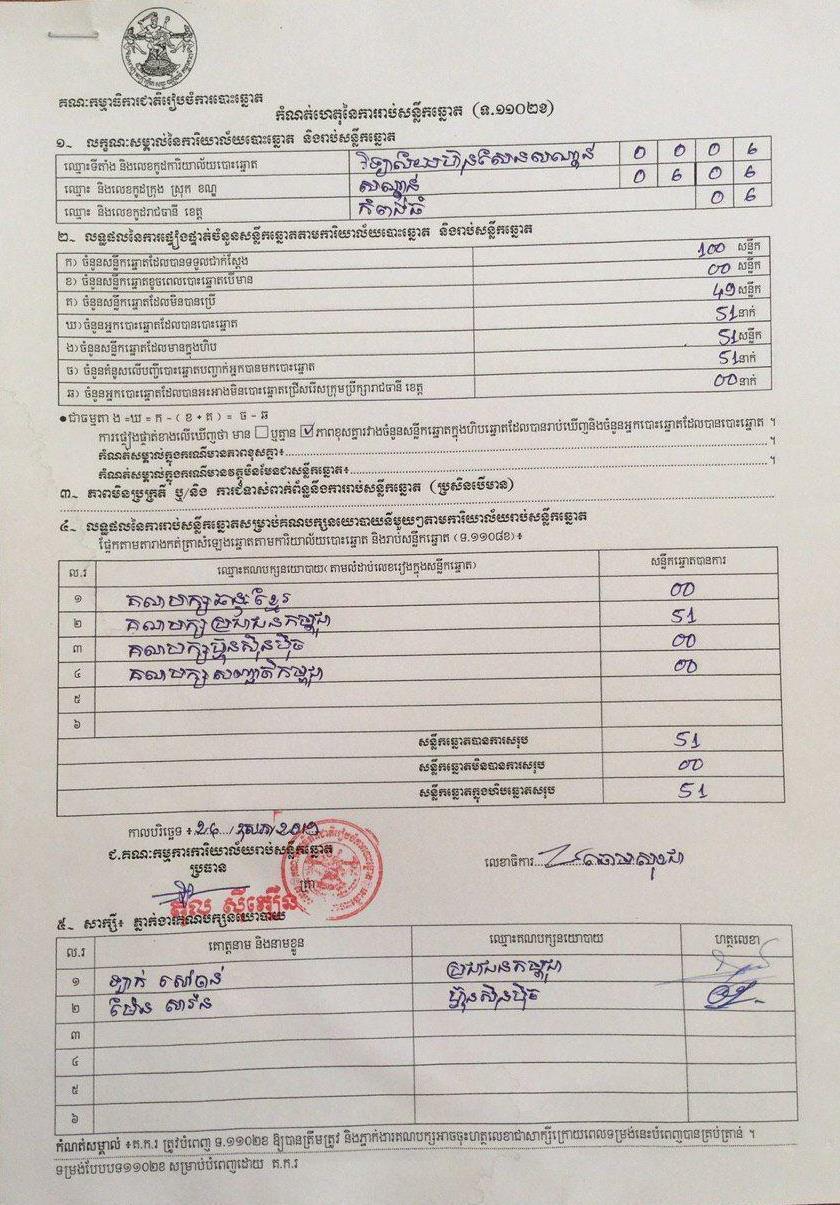 គណៈកម្មាធិការជាតិរៀបចំការបោះឆ្នោត
កំណត់ហេតុនៃការរាប់សន្លឹកឆ្នោត (ទ.១១០២ខ)
១~ លក្ខណៈសម្គាល់នៃការិយាល័យបោះឆ្នោត និងរាប់សន្លឹកឆ្នោត
ឈ្មោះទីតាំង និងលេខកូដការិយាល័យបោះឆ្នោត វិទ្យាល័យហ៊ុនសែនសណ្តាន់ 0 0 0 6
ឈ្មោះ និងលេខកូដក្រុង ស្រុក ខណ្ឌ សណ្តាន់ 0 6 0 6
ឈ្មោះ និងលេខកូដរាជធានី ខេត្ត កំពង់ធំ 0 6
២~ លទ្ធផលនៃការផ្ទៀងផ្ទាត់ចំនួនសន្លឹកឆ្នោតតាមការិយាល័យបោះឆ្នោត និងរាប់សន្លឹកឆ្នោត
ក) ចំនួនសន្លឹកឆ្នោតដែលបានទទួលជាក់ស្តែង 100 សន្លឹក
ខ) ចំនួនសន្លឹកឆ្នោតខូចពេលបោះឆ្នោតបើមាន 00 សន្លឹក
គ) ចំនួនសន្លឹកឆ្នោតដែលមិនបានប្រើ 49 សន្លឹក
ឃ) ចំនួនអ្នកបោះឆ្នោតដែលបានបោះឆ្នោត 51 នាក់
ង) ចំនួនសន្លឹកឆ្នោតដែលមានក្នុងហិប 51 សន្លឹក
ច) ចំនួនគំនូសលើបញ្ជីបោះឆ្នោតបញ្ជាក់អ្នកបានមកបោះឆ្នោត 51 នាក់
ឆ) ចំនួនអ្នកបោះឆ្នោតដែលបានអះអាងមិនបោះឆ្នោតជ្រើសរើសក្រុមប្រឹក្សារាជធានី ខេត្ត 00 នាក់
● ជាធម្មតា ង =ឃ = ក - ( ខ + គ ) = ច - ឆ
ការផ្ទៀងផ្ទាត់ខាងលើឃើញថា មាន ☐ ឬគ្មាន ☑ ភាពខុសគ្នារវាងចំនួនសន្លឹកឆ្នោតក្នុងហិបឆ្នោតដែលបានរាប់ឃើញនិងចំនួនអ្នកបោះឆ្នោតដែលបានបោះឆ្នោត ។
កំណត់សម្គាល់ក្នុងករណីមានភាពខុសគ្នា៖ ។
កំណត់សម្គាល់ក្នុងករណីមានវត្ថុមិនមែនជាសន្លឹកឆ្នោត៖ ។
៣~ ភាពមិនប្រក្រតី ឬ/និង ការជំទាស់ពាក់ព័ន្ធនឹងការរាប់សន្លឹកឆ្នោត (ប្រសិនបើមាន)
៤~ លទ្ធផលនៃការរាប់សន្លឹកឆ្នោតសម្រាប់គណបក្សនយោបាយនីមួយៗតាមការិយាល័យរាប់សន្លឹកឆ្នោត
ផ្អែកតាមតារាងកត់ត្រាសំឡេងឆ្នោតតាមការិយាល័យបោះឆ្នោត និងរាប់សន្លឹកឆ្នោត (ទ.១១០៨ខ)៖
ល.រ ឈ្មោះគណបក្សនយោបាយ(តាមលំដាប់លេខរៀងក្នុងសន្លឹកឆ្នោត) សន្លឹកឆ្នោតបានការ
១ គណបក្សឆន្ទៈខ្មែរ 00
២ គណបក្សប្រជាជនកម្ពុជា 51
៣ គណបក្សហ៊្វុនស៊ិនប៉ិច 00
៤ គណបក្សសញ្ជាតិកម្ពុជា 00
៥
៦
សន្លឹកឆ្នោតបានការសរុប 51
សន្លឹកឆ្នោតមិនបានការសរុប 00
សន្លឹកឆ្នោតក្នុងហិបឆ្នោតសរុប 51
កាលបរិច្ឆេទ ៖
ជ.គណៈកម្មការការិយាល័យរាប់សន្លឹកឆ្នោត
ប្រធាន
ត្រា
លេខាធិការ
៥~ សាក្សី៖ ភ្នាក់ងារគណបក្សនយោបាយ
ល.រ គោត្តនាម និងនាមខ្លួន ឈ្មោះគណបក្សនយោបាយ ហត្ថលេខា
១ ប្រជាជនកម្ពុជា
២ ហ៊្វុនស៊ិនប៉ិច
៣
៤
៥
៦
កំណត់សម្គាល់ ៖គ.ក.រ ត្រូវបំពេញ ទ.១១០២ខ ឱ្យបានត្រឹមត្រូវ និងភ្នាក់ងារគណបក្សអាចចុះហត្ថលេខាជាសាក្សីក្រោយពេលទម្រង់នេះបំពេញបានគ្រប់គ្រាន់ ។
ទម្រង់បែបបទ១១០២ខ សម្រាប់បំពេញដោយ គ.ក.រ